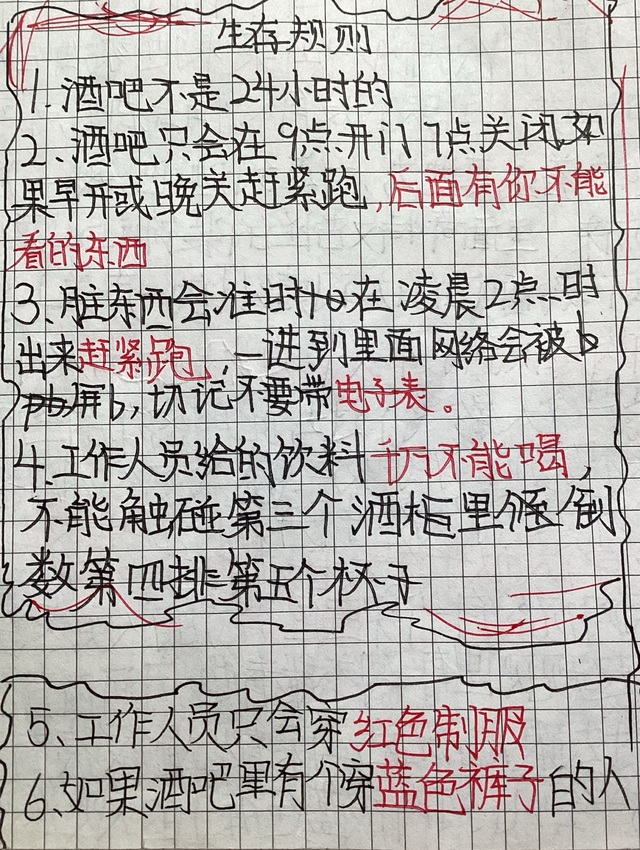 生存规则
1.酒吧不是24小时的
2、酒吧只会在9点开门7点关闭如
果早开或晚关赶紧跑,后面有你不能
看的东西
3、脏东西会准时在凌晨2点时
出来赶紧跑,一进到里面网络会被b
屏b,切记不要带电子表。
4.工作人员给的饮料千万不能喝,
不能触碰第三个酒柜里倒
数第四排第五个杯子
5、工作人员只会穿红色制服
6、如果酒吧里有个穿蓝色裤子的人